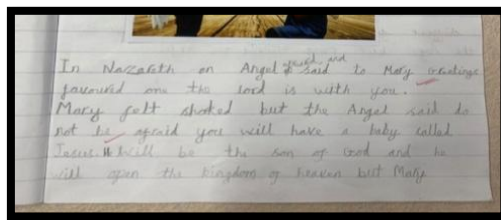 In Nazareth an Angel said to Mary Greetings
favoured one the lord is with you.
Mary felt shoked but the Angel said do
not be afraid you will have a baby called
Jesus. He will be the son of God and he
will open the kingdom of heaven but Mary